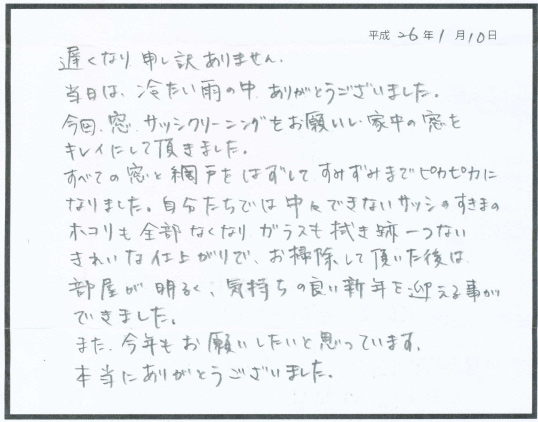 平成 26年 1月 10日
遅くなり申し訳ありません.
当日は、冷たい雨の中、ありがとうございました。
今回、窓、サッシクリーニングをお願いし、家中の窓を
キレイにして頂きました。
すべての窓と網戸をはずしてすみずみまでピカピカに
なりました。自分たちでは中々できないサッシのすきまの
ホコリも全部なくなりガラスも拭き跡一つない
きれいな仕上がりで、お掃除して頂いた後は
部屋が明るく、気持ちの良い新年を迎える事が
できました。
また、今年もお願いしたいと思っています。
本当にありがとうございました。